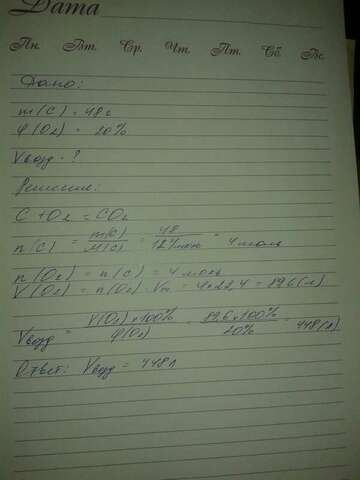 Дата
Пн. Вт. Ср. Чт. Пт. Сб. Вс.
Дано:
m(C) = 48 г
φ(O2) = 20%
Vвозд - ?
Решение:
C + O2 = CO2
n(C) = m(C)/M(C) = 48/12 г/моль = 4 моль
n(O2) = n(C) = 4 моль
V(O2) = n(O2) · Vm = 4×22,4 = 89,6 (л)
Vвозд = V(O2)×100%/φ(O2) = 89,6×100%/20% = 448 (л)
Ответ: Vвозд = 448 л